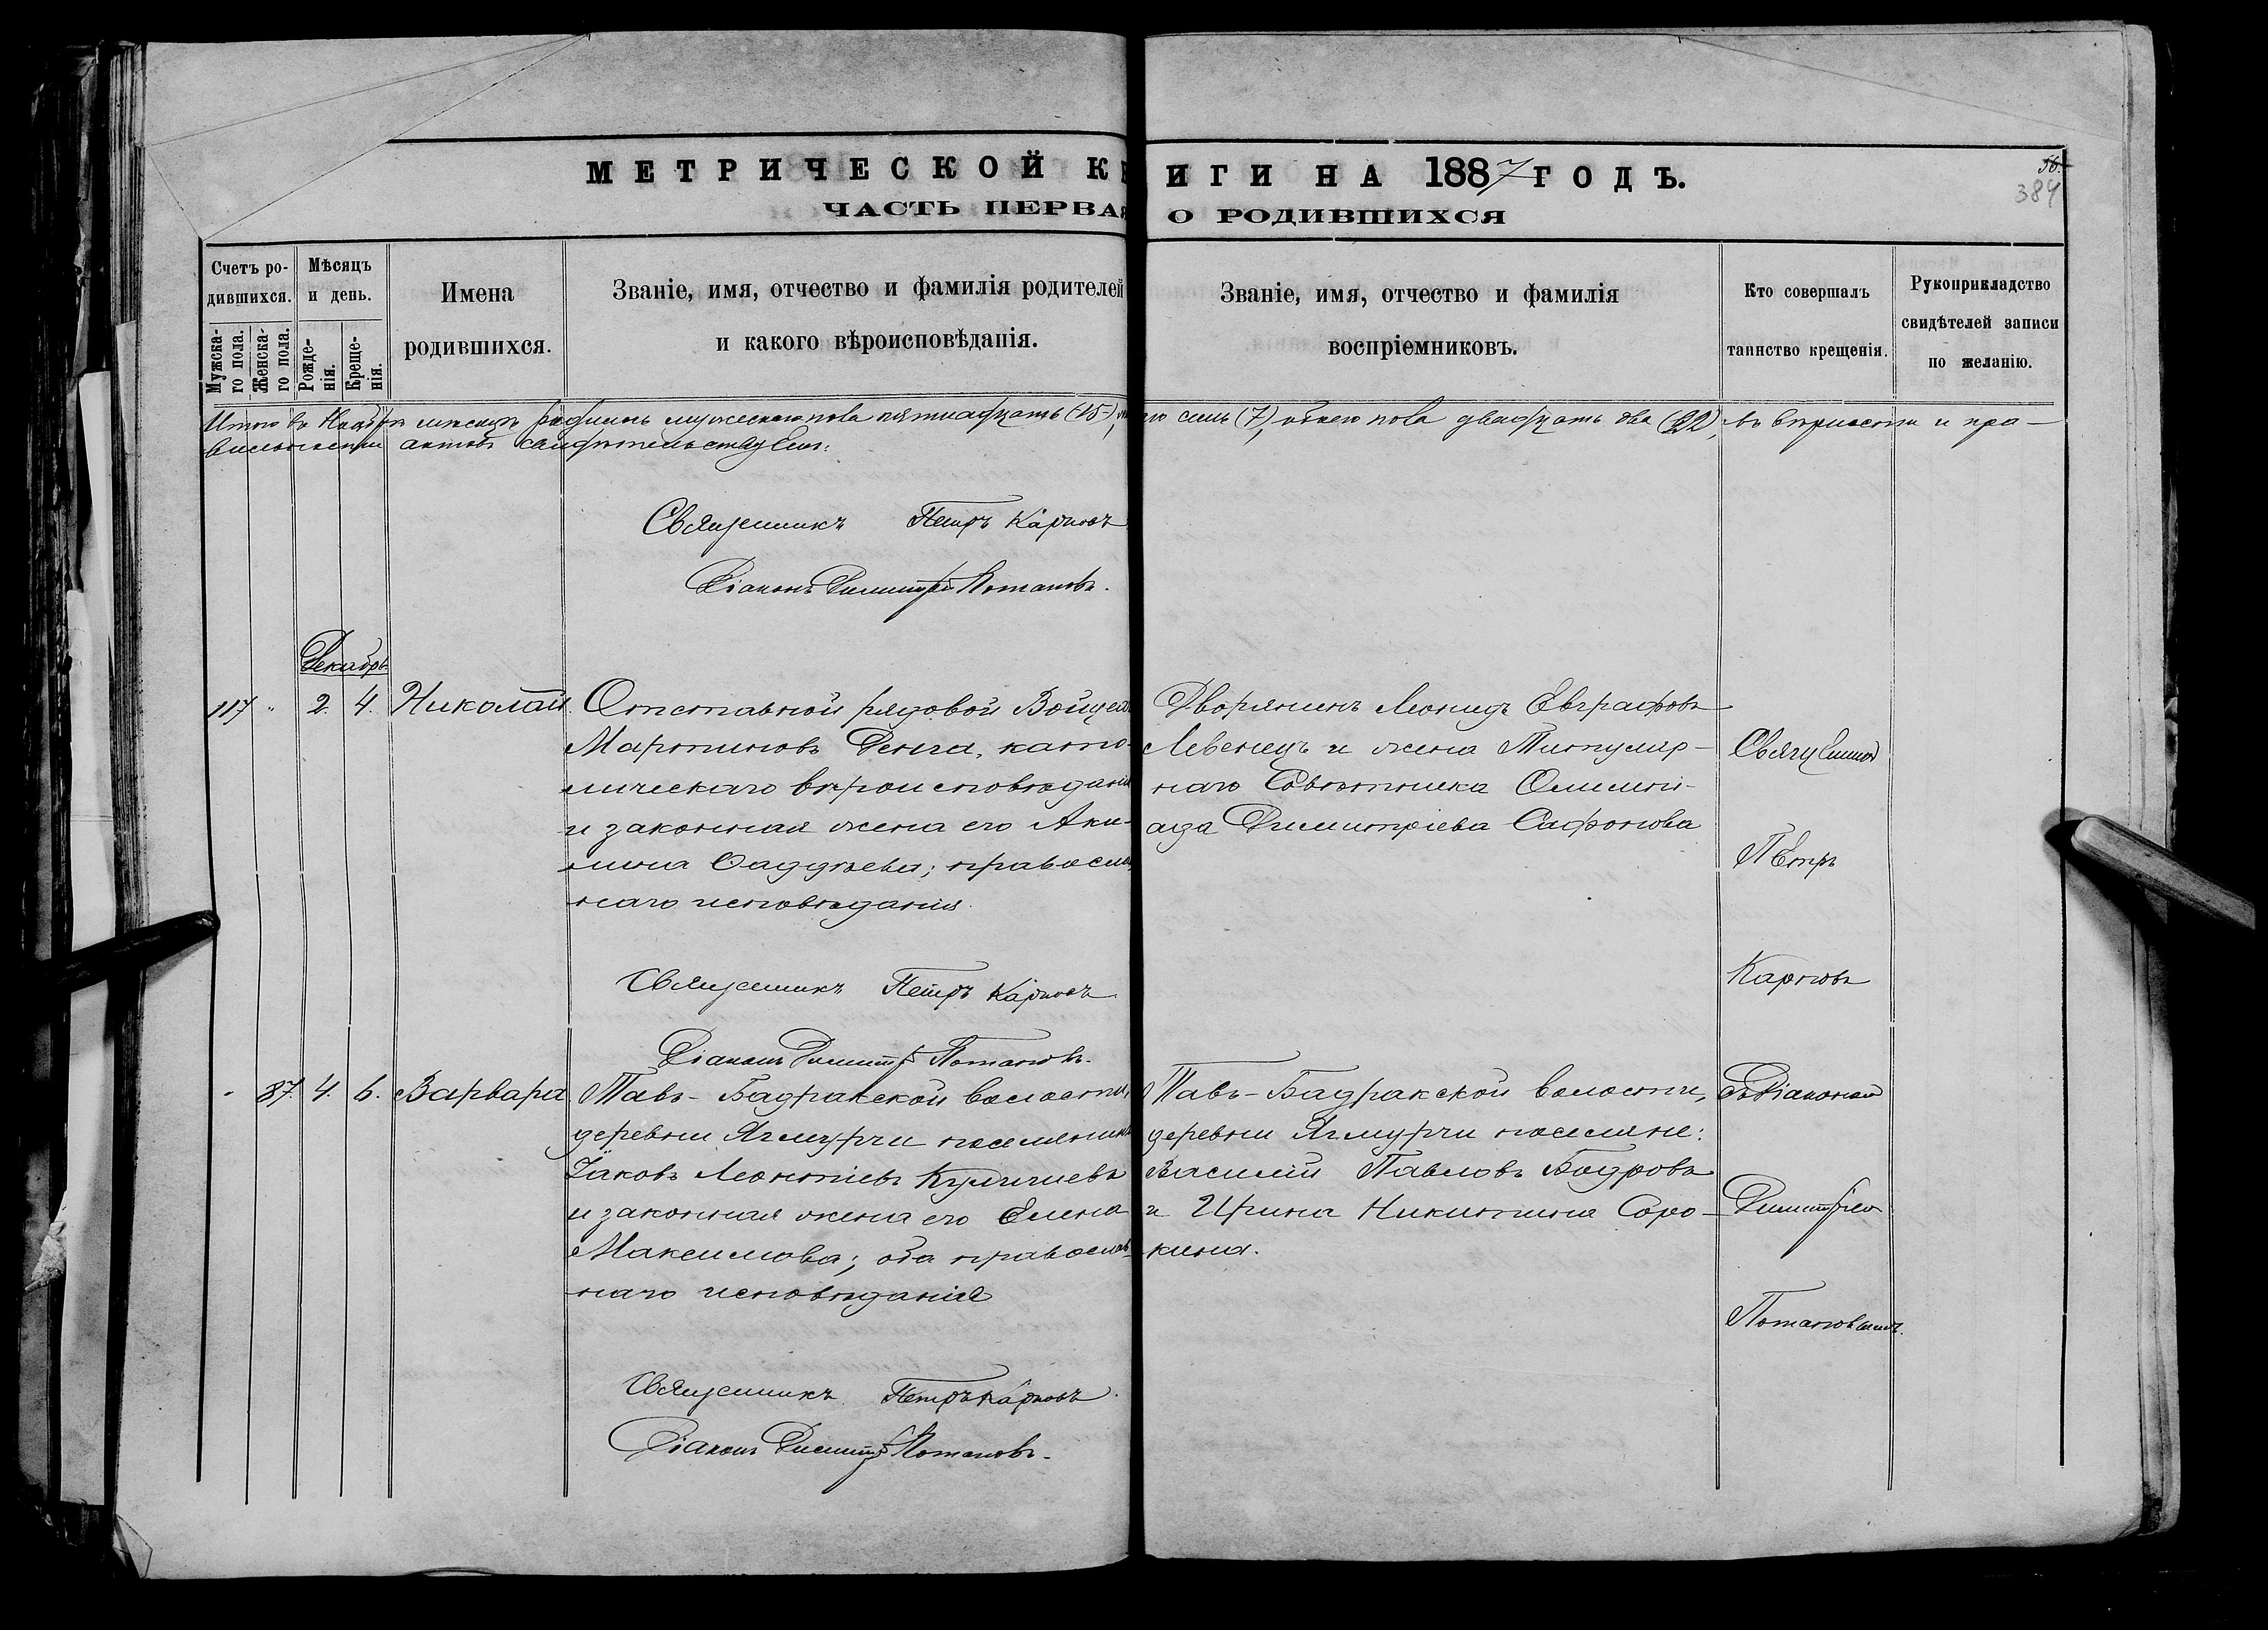 МЕТРИЧЕСКОЙ К ИГИ НА 1887 ГОДЪ.
56.
384
ЧАСТЬ ПЕРВАЯ О РОДИВШИХСЯ
Счетъ ро-
дившихся.
Мужска-
го пола.
Женска-
го пола.
Мѣсяцъ
и день.
Рожде-
нія.
Креще-
нія.
Имена
родившихся.
Званіе, имя, отчество и фамилія родителей
и какого вѣроисповѣданія.
Званіе, имя, отчество и фамилія
воспріемниковъ.
Кто совершалъ
таинство крещенія.
Рукоприкладство
свидѣтелей записи
по желанію.
Итого въ Ноябрѣ мѣсяцѣ родилось мужескаго пола пятнадцать (15), го семь (7), обоего пола двадцать два (22), въ вѣрности и пра-
вильности актовъ свидѣтельствуемъ:
Священникъ Петръ Карповъ
Діаконъ Димитрій Потаповъ.
Декабрь
117 " 2. 4. Николай.
Отставной рядовой Войцех
Мартиновъ Денга, като-
лическаго вѣроисповѣданія
и законная жена его Аки-
лина Фаддѣева; правосла
наго исповѣданія.
Дворянинъ Леонидъ Евграфовъ
Левенецъ и жена Титуляр-
наго Совѣтника Олимпі-
ада Димитріева Сафонова
Священник
Петръ
Карповъ
Священникъ Петръ Карповъ
Діаконъ Димитр Потаповъ.
" 87. 4. 6. Варвара
Тавъ-Бадракской волости,
деревни Ягмурчи поселянинъ
Іаковъ Леонтіевъ Куличиевъ
и законная жена его Елена
Максимова; оба православ-
наго исповѣданія
Тавъ-Бадракской волости,
деревни Ягмурчи поселяне:
Василій Павловъ Бодровъ
и Ирина Никитина Соро-
кина.
Діаконом
Димитріем
Потаповымъ.
Священникъ Петръ Карповъ.
Діаконъ Димитр Потаповъ.